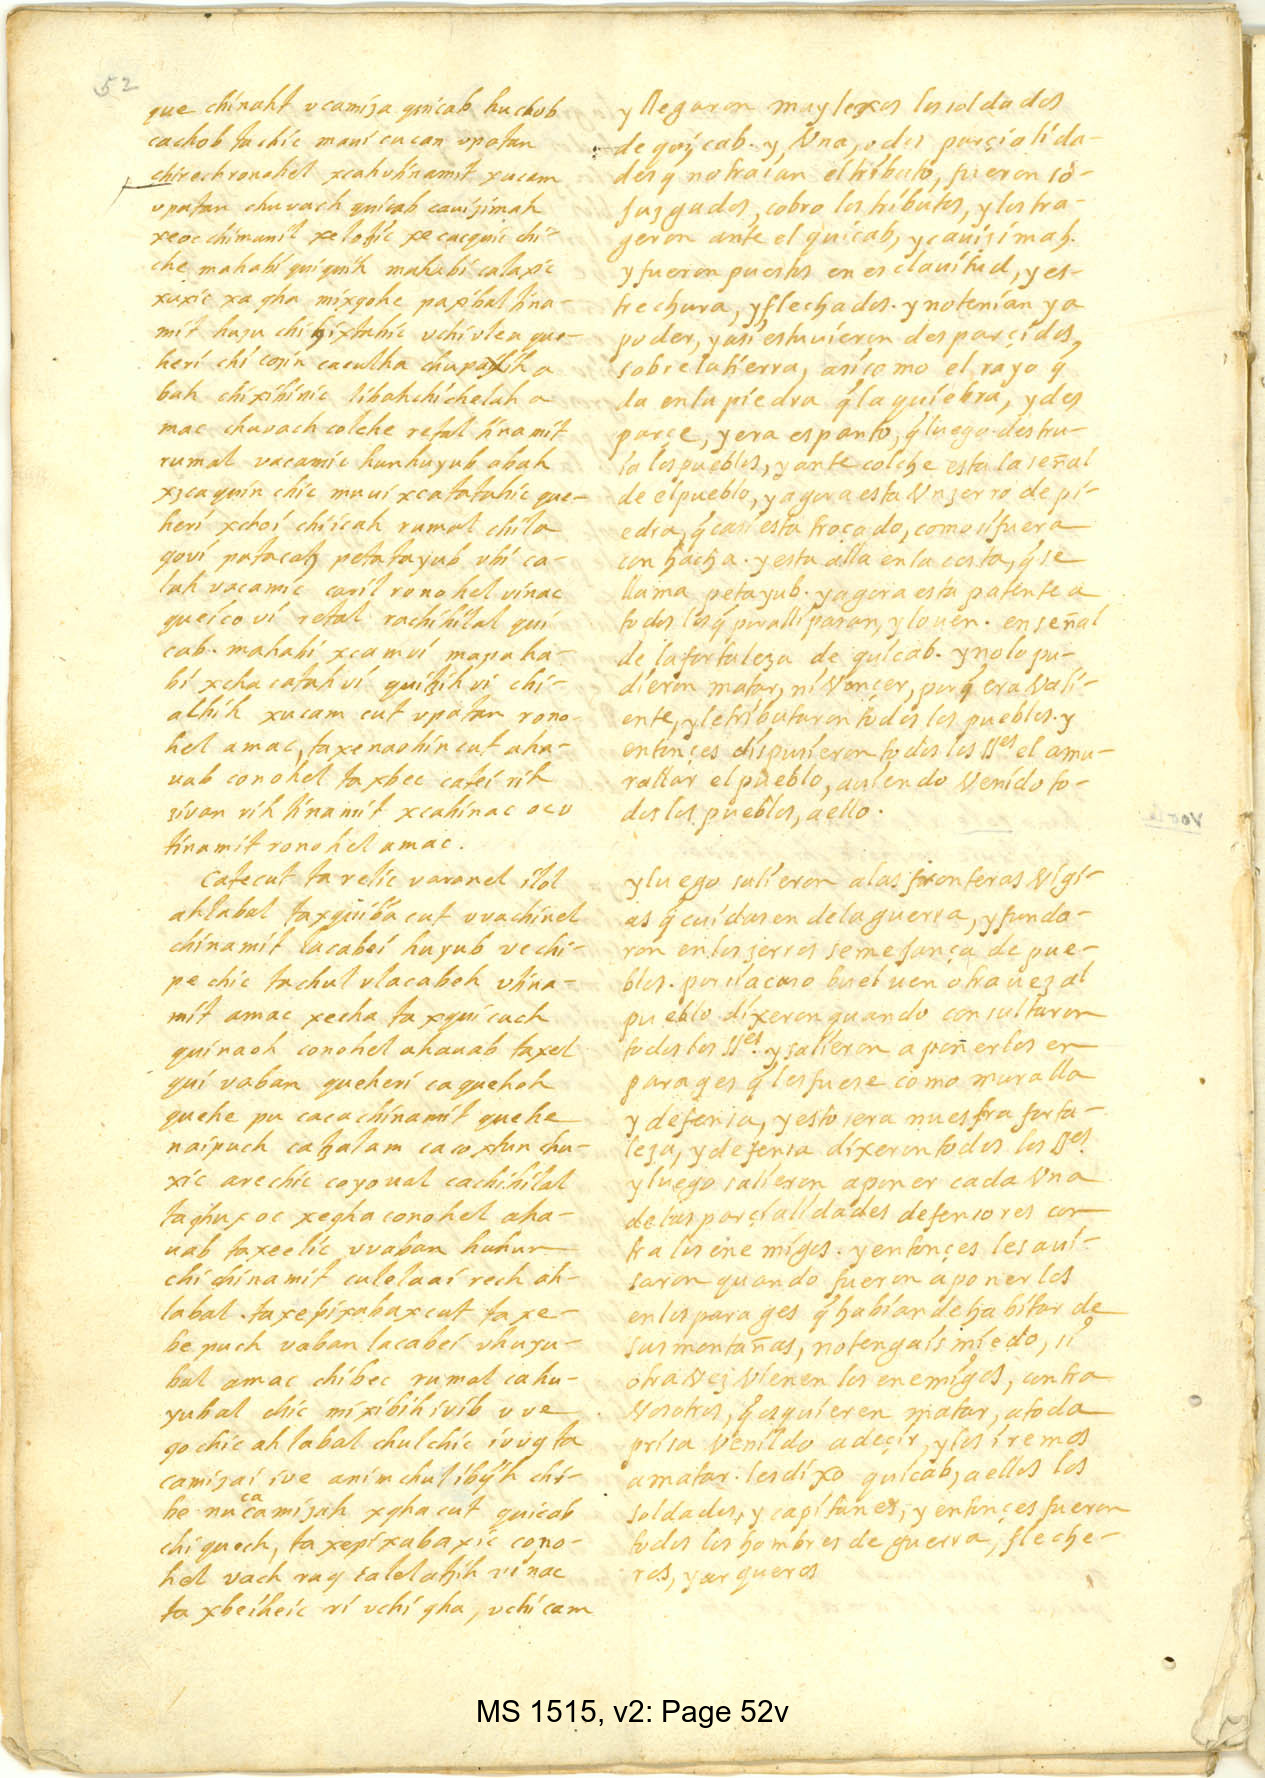 52
que chinaht vcamiza quicab huchob
cachob tachic maui cucan vpatan
chirech ronohel xcahutinamit xucam
vpatan chuvach quicab cauizimah
xeoc chimunil xetotzic xecacquic chi-
che mahabi quiquih mahabi calaxic
xuxic xa gha mixgohe paxibal tina-
mit huzu chi tzixtahic vchivleu que-
heri chi cozin caculha chupaxih a
bah chixibinic libahchichelah a
mac chuvach colche retal tinamit
rumal vacamic hunhuyub abah
xzcaquin chic maui xcatatahic que-
heri xchoi chiicah rumal chila
govi patacah petatayub vbi ca-
lah vacamic caril ronohel vinac
queico vi retal rachihilal qui
cab. mahabi xcamvi mapaha-
bi xchacatahvi quitzih vi chi-
alhih xucam cut vpatan rono-
hel amac, taxenaohin cut aha-
uab conohel taxbec catei rih
zivan rih tinamit xcahinac ocv
tinamit ronohel amac.
catecut tarelic varanel ilol
ahlabal taxquiba cut vvachinel
chinamit lacabei huyub vechi-
pe chic tachul vlacabeh vtina-
mit amac xecha taxquicuch
quinaoh conohel ahauab taxel
qui vaban queheri caquehoh
quehe pu cacachinamit quehe
naipuch catzalam cacoxtun chu-
xic arechic coyoual cachihilal
taqhuxoc xegha conohel aha-
uab taxeelic vvaban huhun
chi chinamit culelaai rech ah-
labal. taxepixabaxcut taxe-
be puch vaban lacabei vhuyu-
bal amac chibec rumal cahu-
yubal chic mixibihivib vve
gochic ahlabal chulchic ivvgta
camizai ive anim chulibijh chi-
be nucacamizah xghacut quicab
chiquech, taxepixabaxic cono-
hel vach rag zalelatzih vinac
taxbeiheic ri vchi gha, vchicam
y llegaron muy lexos los soldados
de quicab. y, Vna, o dos parcialida-
des q no traian el tributo, fueron so-
juzgados, cobro los tributos, y los tra-
geron ante el quicab, y cauisimah.
y fueron puestos en esclauitud, y es-
trechura, y flechados. y no tenian ya
poder, y asi estuuieron desparçidos,
sobre la tierra, asi como el rayo q̃
da en la piedra q̃ la quiebra, y des
parçe, y era espanto, q̃ luego destru-
ia los pueblos, y ante colche esta la señal
de el pueblo, y agora esta Vn zerro de pi-
edra, q̃ casi esta troçado, como si fuera
con hacha. y esta alla en la costa, q̃ se
llama petayub. y agora esta patente a
todos los q̃ por alli pasan, y lo uen. en señal
de la fortaleza de quicab. y no lo pu-
dieron matar, ni Vençer, porq̃ era Vali-
ente, y le tributaron todos los pueblos. y
entonçes dispusieron todos los SSes el amu-
rallar el pueblo, auiendo Venido to-
dos los pueblos, a ello.
y luego salieron a las fronteras Vigi-
as q̃ cuidasen de la guerra, y funda-
ron en los zerros semejança de pue-
blos. por si acaso bueluen otra uez al
pueblo dixeron quando consultaron
todos los SSes. y salieron a ponerlos en
parages q̃ les fuese como muralla
y defensa, y esto sera nuestra forta-
leza, y defensa dixeron todos los SSes.
y luego salieron a poner cada Vna
de las parçialidades defensores con
tra los enemigos. y entonçes les aui-
saron quando fueron a ponerlos
en los parages q̃ habian de habitar de
sus montañas, no tengais miedo, si
otra Vez Vienen los enemigos, contra
Vosotros, q̃ os quieren matar, a toda
prisa Venildo a deçir, y los iremos
a matar. les dixo quicab, a ellos los
soldados, y capitanes, y entonçes fueron
todos los hombres de guerra, fleche-
ros, y arqueros
MS 1515, v2: Page 52v